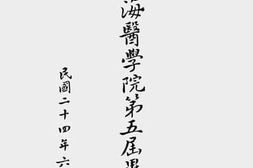 海醫學院第五屆畢
民國二十四年六